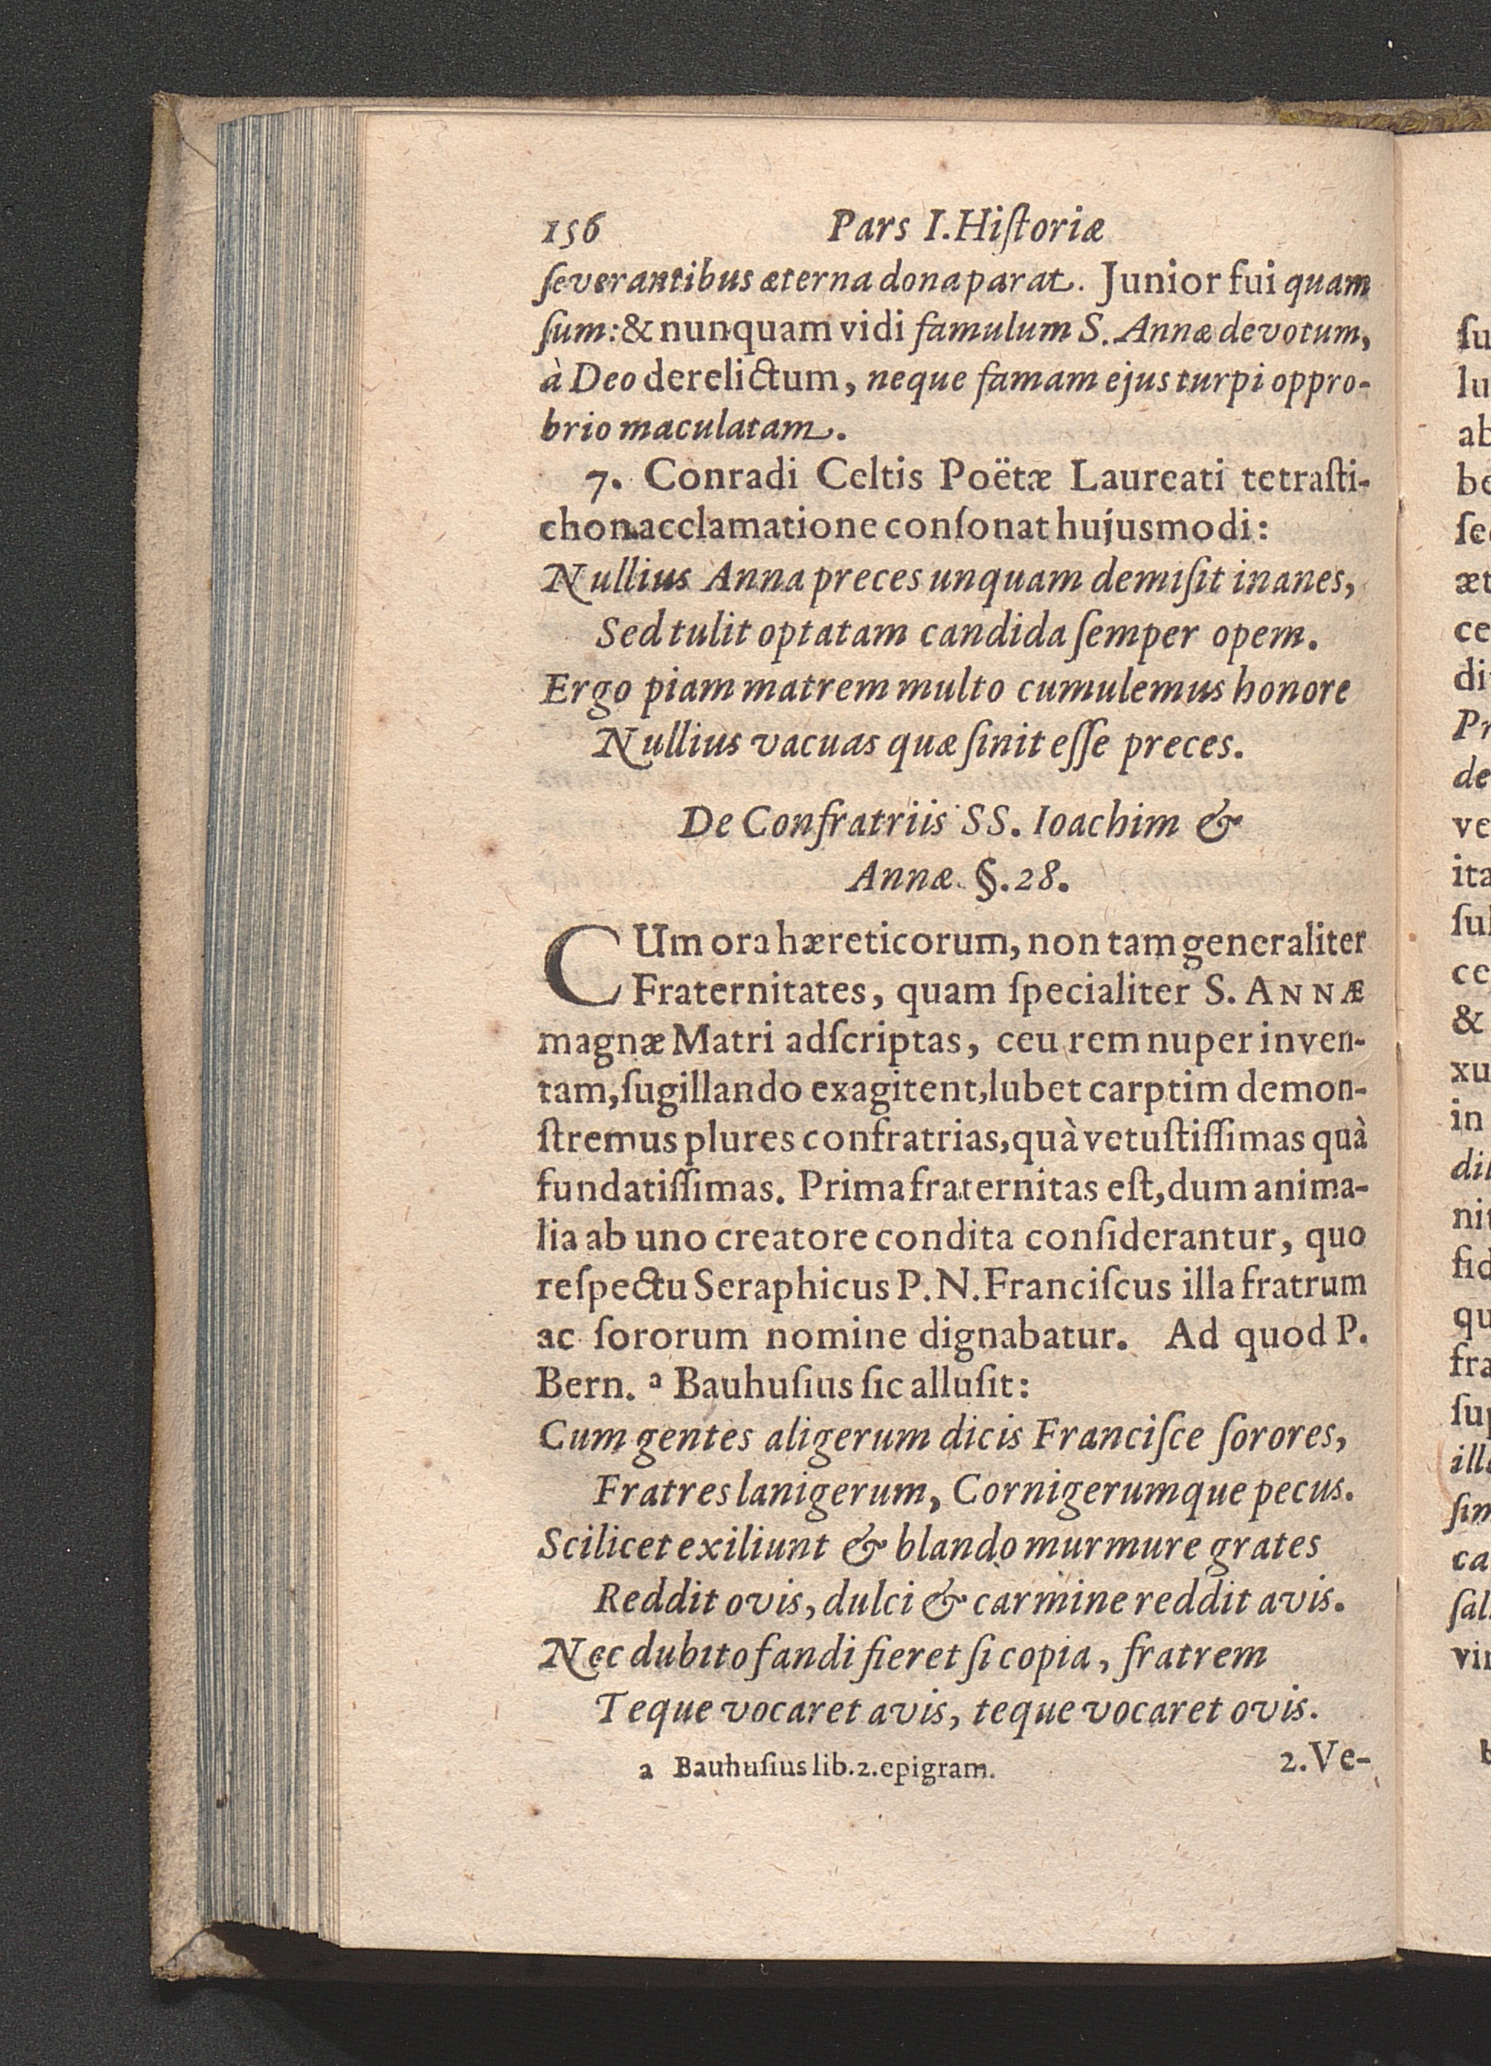 156 Pars I. Historiæ
ſeverantibus æterna dona parat. Junior fui quam
ſum: & nunquam vidi famulum S. Annæ devotum,
à Deo derelictum, neque famam ejus turpi oppro-
brio maculatam.
7. Conradi Celtis Poëtæ Laureati tetraſti-
chon acclamatione conſonat hujusmodi:
Nullius Anna preces unquam demiſit inanes,
Sed tulit optatam candida ſemper opem.
Ergo piam matrem multo cumulemus honore
Nullius vacuas quæ ſinit eſſe preces.
De Confratriis SS. Ioachim &
Annæ §. 28.
CUm ora hæreticorum, non tam generaliter
Fraternitates, quam ſpecialiter S. ANNÆ
magnæ Matri adſcriptas, ceu rem nuper inven-
tam, ſugillando exagitent, lubet carptim demon-
ſtremus plures confratrias, quà vetuſtiſſimas quà
fundatiſſimas. Prima fraternitas eſt, dum anima-
lia ab uno creatore condita conſiderantur, quo
reſpectu Seraphicus P. N. Franciſcus illa fratrum
ac ſororum nomine dignabatur. Ad quod P.
Bern. a Bauhuſius ſic alluſit:
Cum gentes aligerum dicis Franciſce ſorores,
Fratres lanigerum, Cornigerumque pecus.
Scilicet exiliunt & blando murmure grates
Reddit ovis, dulci & carmine reddit avis.
Nec dubito fandi fieret ſi copia, fratrem
Teque vocaret avis, teque vocaret ovis.
a Bauhuſius lib. 2. epigram. 2. Ve-